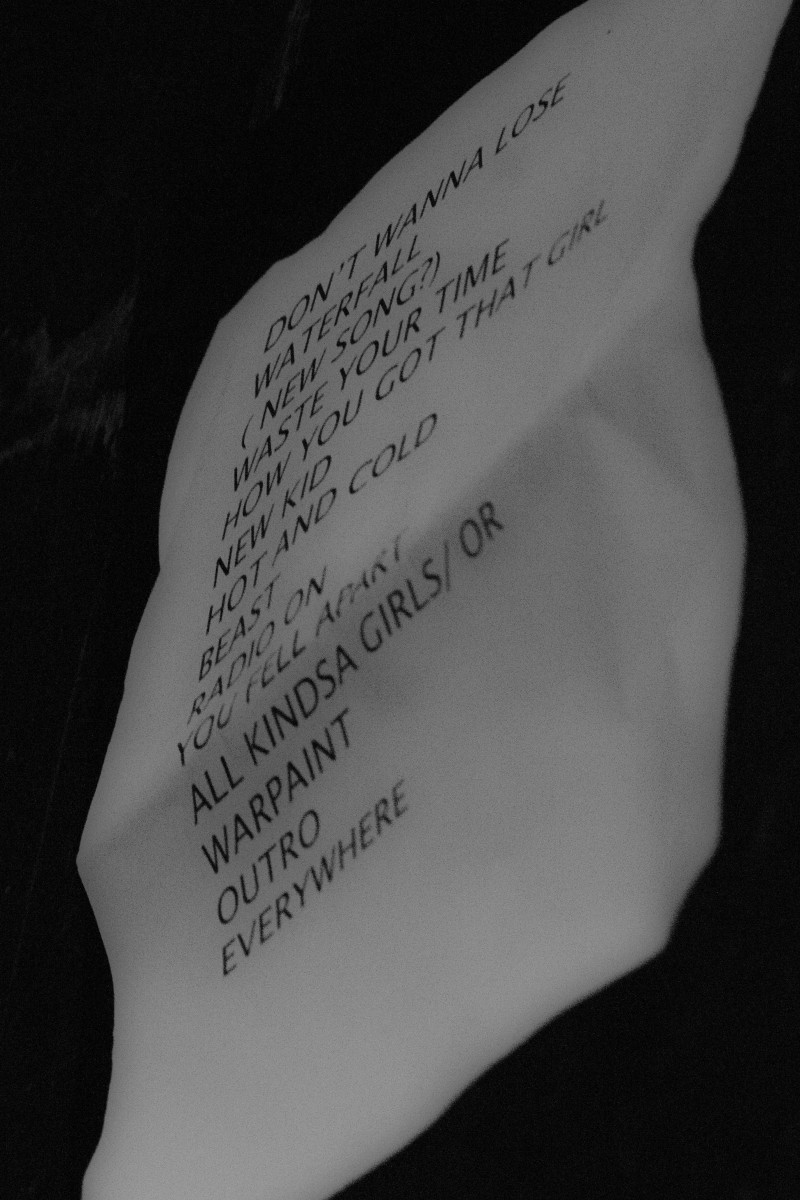 DON'T WANNA LOSE
WATERFALL
( NEW SONG?)
WASTE YOUR TIME
HOW YOU GOT THAT GIRL
NEW KID
HOT AND COLD
BEAST
RADIO ON
YOU FELL APART
ALL KINDSA GIRLS/ OR
WARPAINT
OUTRO
EVERYWHERE